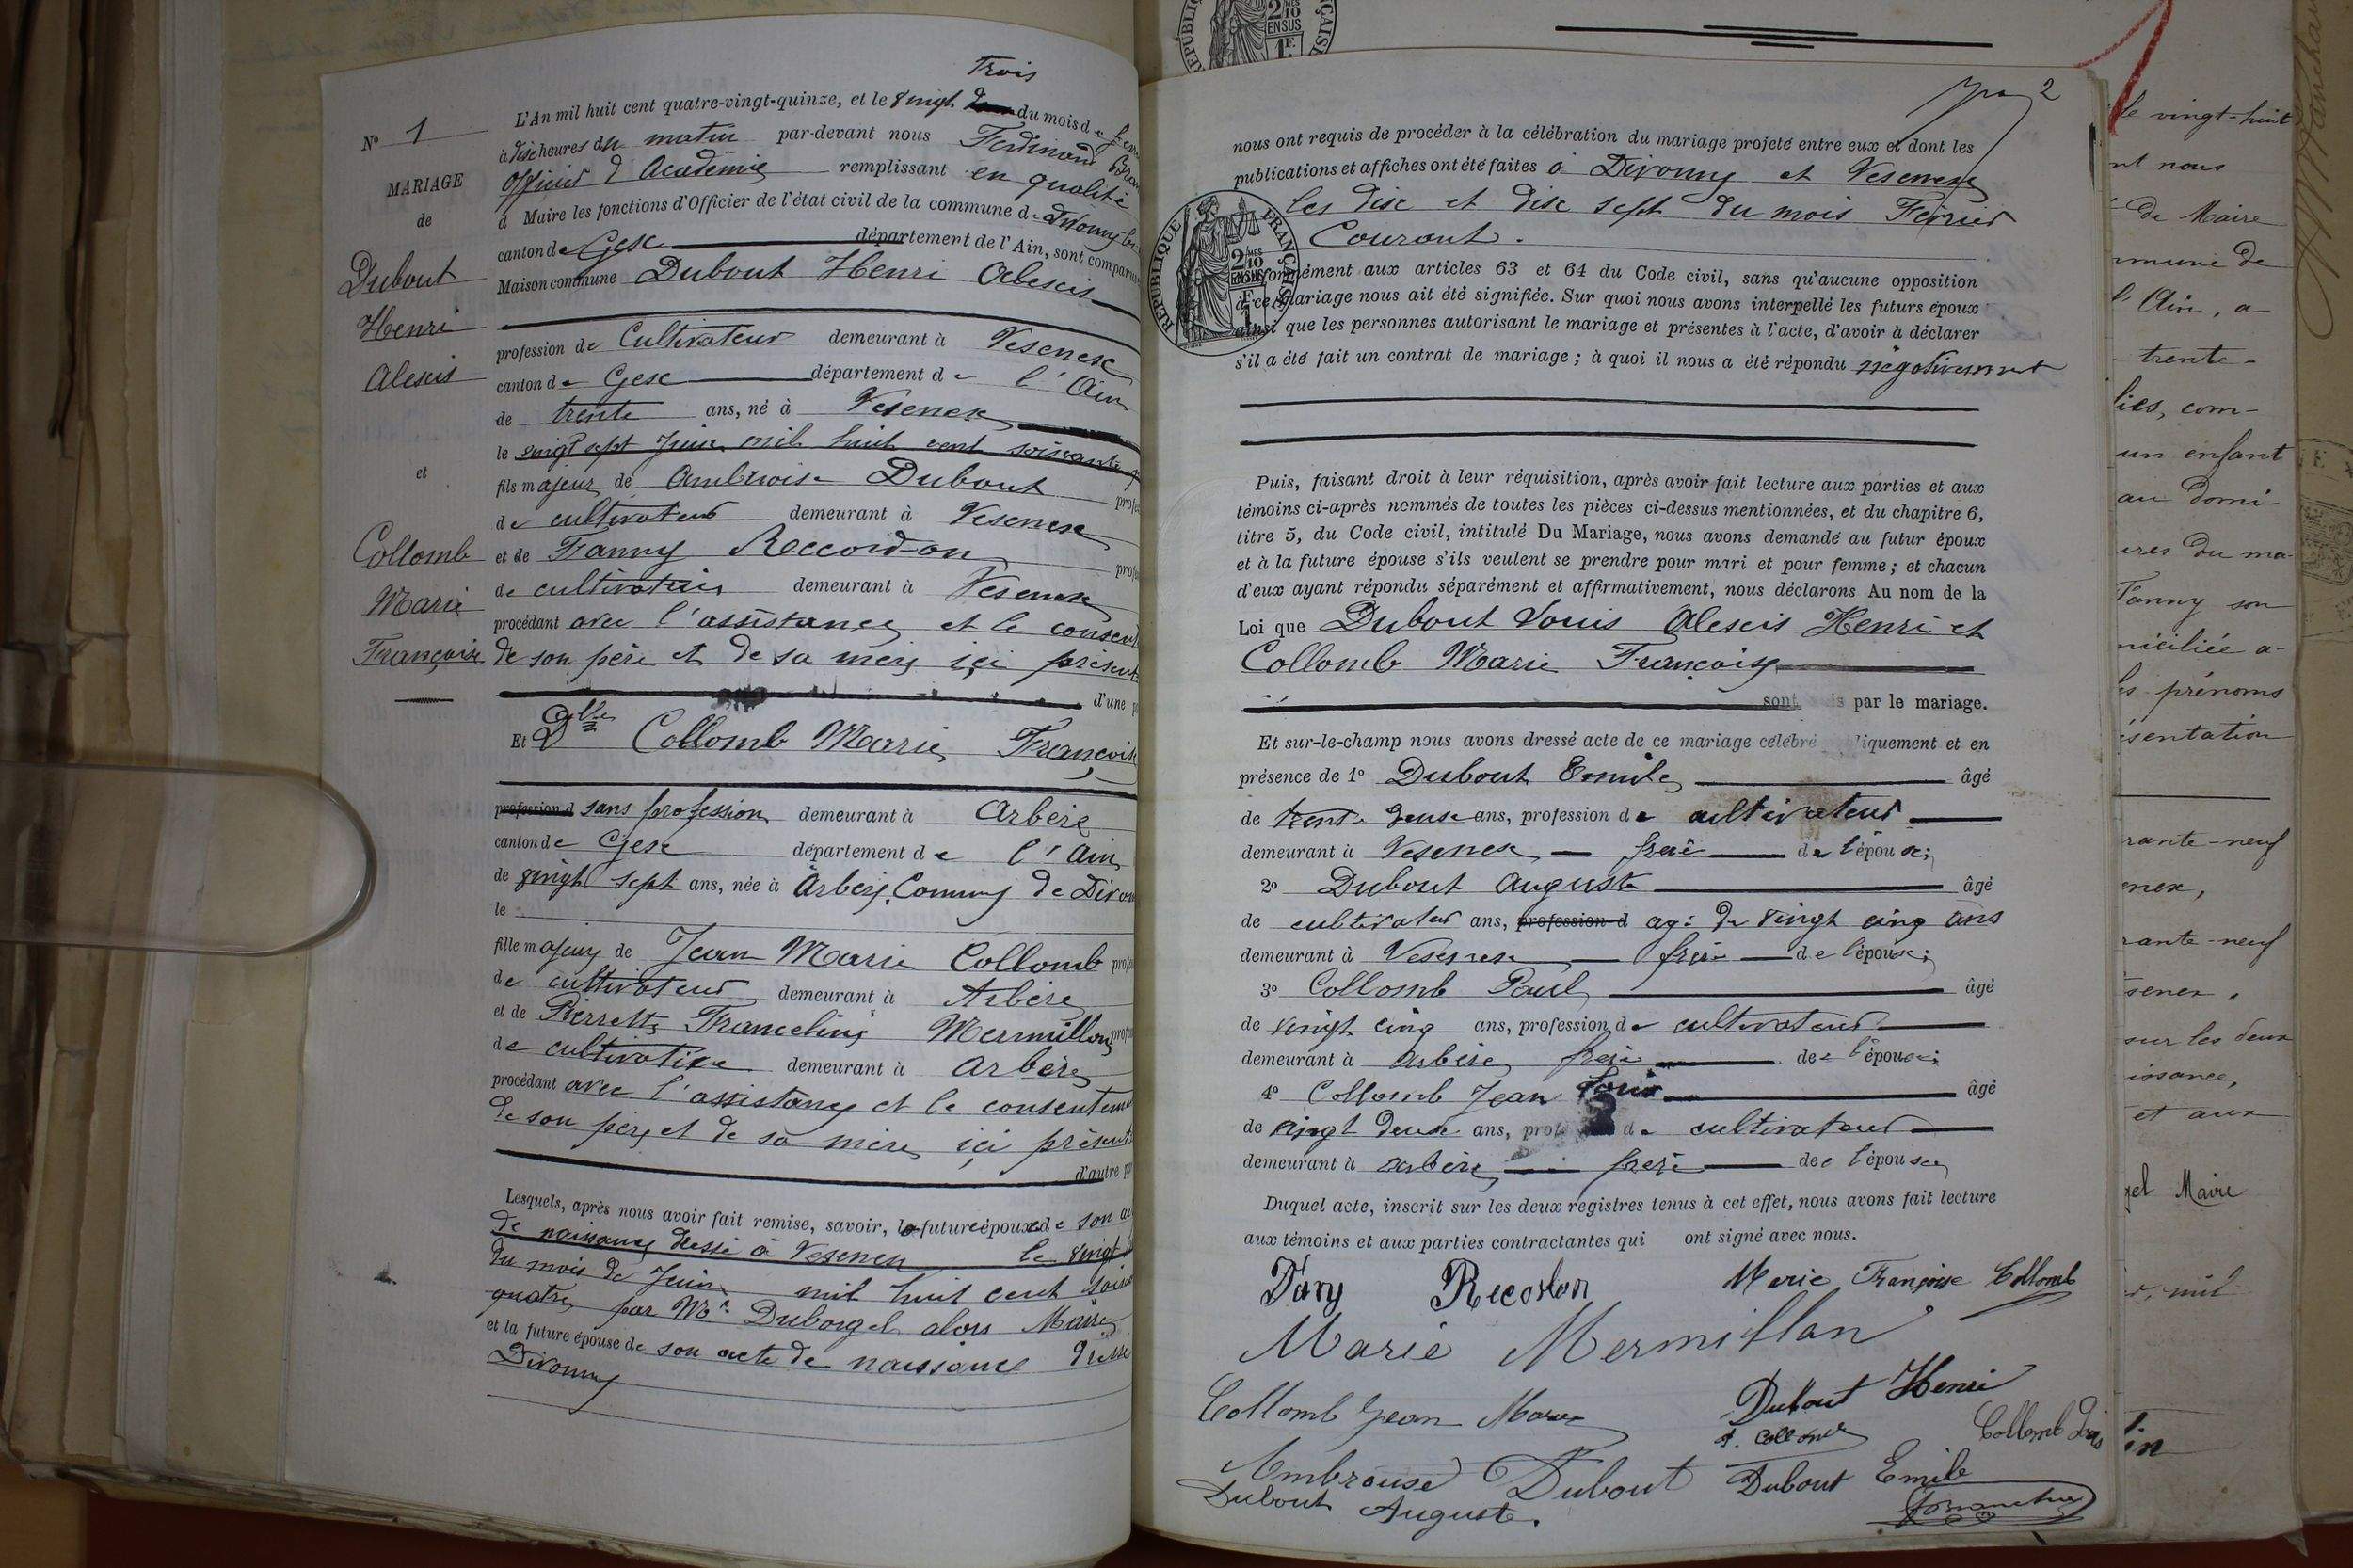 Trois
N° 1
MARIAGE
de
Dubout
Henri
Alexis
et
Collomb
Marie
Françoise
L'An mil huit cent quatre-vingt-quinze, et le vingt du mois de
à dix heures du matin par-devant nous Ferdinand
officier d'Académie remplissant en qualité
d Maire les fonctions d'Officier de l'état civil de la commune de
canton de Gex département de l'Ain, sont comparus
Maison commune Dubout Henri Alexis
profession de Cultivateur demeurant à Vesenex
canton de Gex département de l'Ain
de trente ans, né à Vesenex
le vingt sept Juin mil huit cent soixante
fils majeur de Ambroise Dubout
de cultivateur demeurant à Vesenex
et de Fanny Reccordon
de cultivatrice demeurant à Vesenex
procédant avec l'assistance et le consent
de son père et de sa mère içi présent
d'une
Et Dlle Collomb Marie Françoise
profession d sans profession demeurant à Arbère
canton de Gex département de l'Ain
de vingt sept ans, née à Arbère, Commune de Divon
le
fille majeure de Jean Marie Collomb
de cultivateur demeurant à Arbère
et de Pierrette Franceline Mermillon
de cultivatrice demeurant à Arbère
procédant avec l'assistance et le consenteme
de son père et de sa mère içi présents
d'autre
Lesquels, après nous avoir fait remise, savoir, le futur époux de son
de naissance dressé à Vesenex le vingt
du mois de Juin mil huit cent soix
quatre, par Mr Duborgel alors Maire
et la future épouse de son acte de naissance dressé
Divonne
2
nous ont requis de procéder à la célébration du mariage projeté entre eux et dont les
publications et affiches ont été faites à Divonne et Vesenex
les dix et dix sept du mois Février
Courant.
conformément aux articles 63 et 64 du Code civil, sans qu'aucune opposition
à ce mariage nous ait été signifiée. Sur quoi nous avons interpellé les futurs époux
ainsi que les personnes autorisant le mariage et présentes à l'acte, d'avoir à déclarer
s'il a été fait un contrat de mariage ; à quoi il nous a été répondu négativement
Puis, faisant droit à leur réquisition, après avoir fait lecture aux parties et aux
témoins ci-après nommés de toutes les pièces ci-dessus mentionnées, et du chapitre 6,
titre 5, du Code civil, intitulé Du Mariage, nous avons demandé au futur époux
et à la future épouse s'ils veulent se prendre pour mari et pour femme ; et chacun
d'eux ayant répondu séparément et affirmativement, nous déclarons Au nom de la
Loi que Dubout Louis Alexis Henri et
Collomb Marie Françoise
sont par le mariage.
Et sur-le-champ nous avons dressé acte de ce mariage célébré publiquement et en
présence de 1° Dubout Emile âgé
de trente deux ans, profession de cultivateur
demeurant à Vesenex frère de l'époux;
2° Dubout Auguste âgé
de cultivateur ans, profession d agé de vingt cinq ans
demeurant à Vesenex frère de l'époux;
3° Collomb Paul âgé
de vingt cinq ans, profession de cultivateur
demeurant à Arbère frère de l'épouse;
4° Collomb Jean Louis âgé
de vingt deux ans, profession de cultivateur
demeurant à Arbère frère de l'épouse
Duquel acte, inscrit sur les deux registres tenus à cet effet, nous avons fait lecture
aux témoins et aux parties contractantes qui ont signé avec nous.
Fany Recordon Marie Françoise Collomb
Marie Mermillon
Collomb Jean Marie Dubout Henri
P. Collomb Collomb Louis
Ambroise Dubout Dubout Emile
Dubout Auguste.
RÉPUBLIQUE FRANÇAISE
2/10 EN SUS
le vingt-huit
nt nous
de Maire
mmune de
l'Ain, a
trente-
lies, com-
un enfant
au domi-
ures du ma-
Fanny son
miciliée a-
les prénoms
ésentation
rante-neuf
enex,
rante-neuf
senex.
sur les deux
issance,
et aux
gel Maire
mil